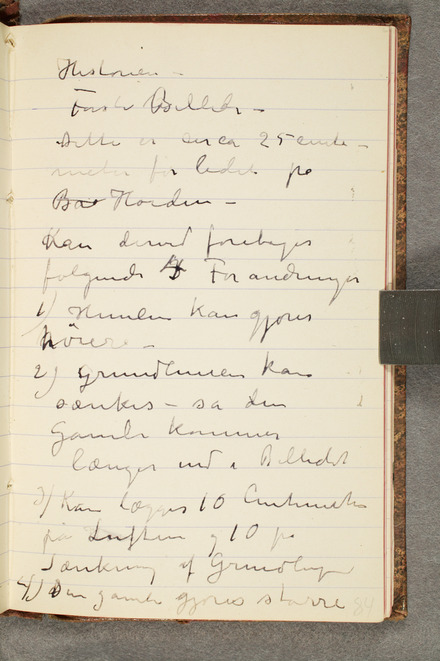 Historien –
Første Billede –
dette er circa 25 centi-
meter for lidet på
Høiden –
Kan derved foretages
følgende 4 Forandringer
1) Himlen kan gjøres
høiere –
2) Grundlinien kan
sænkes – så den
Gamle kommer
længer ned i Billedet
3) Kan lægges 10 Centimeter
på Luften og 10 på
Sænkning af Grundlinjen
4) Den gamle gjøres større
84